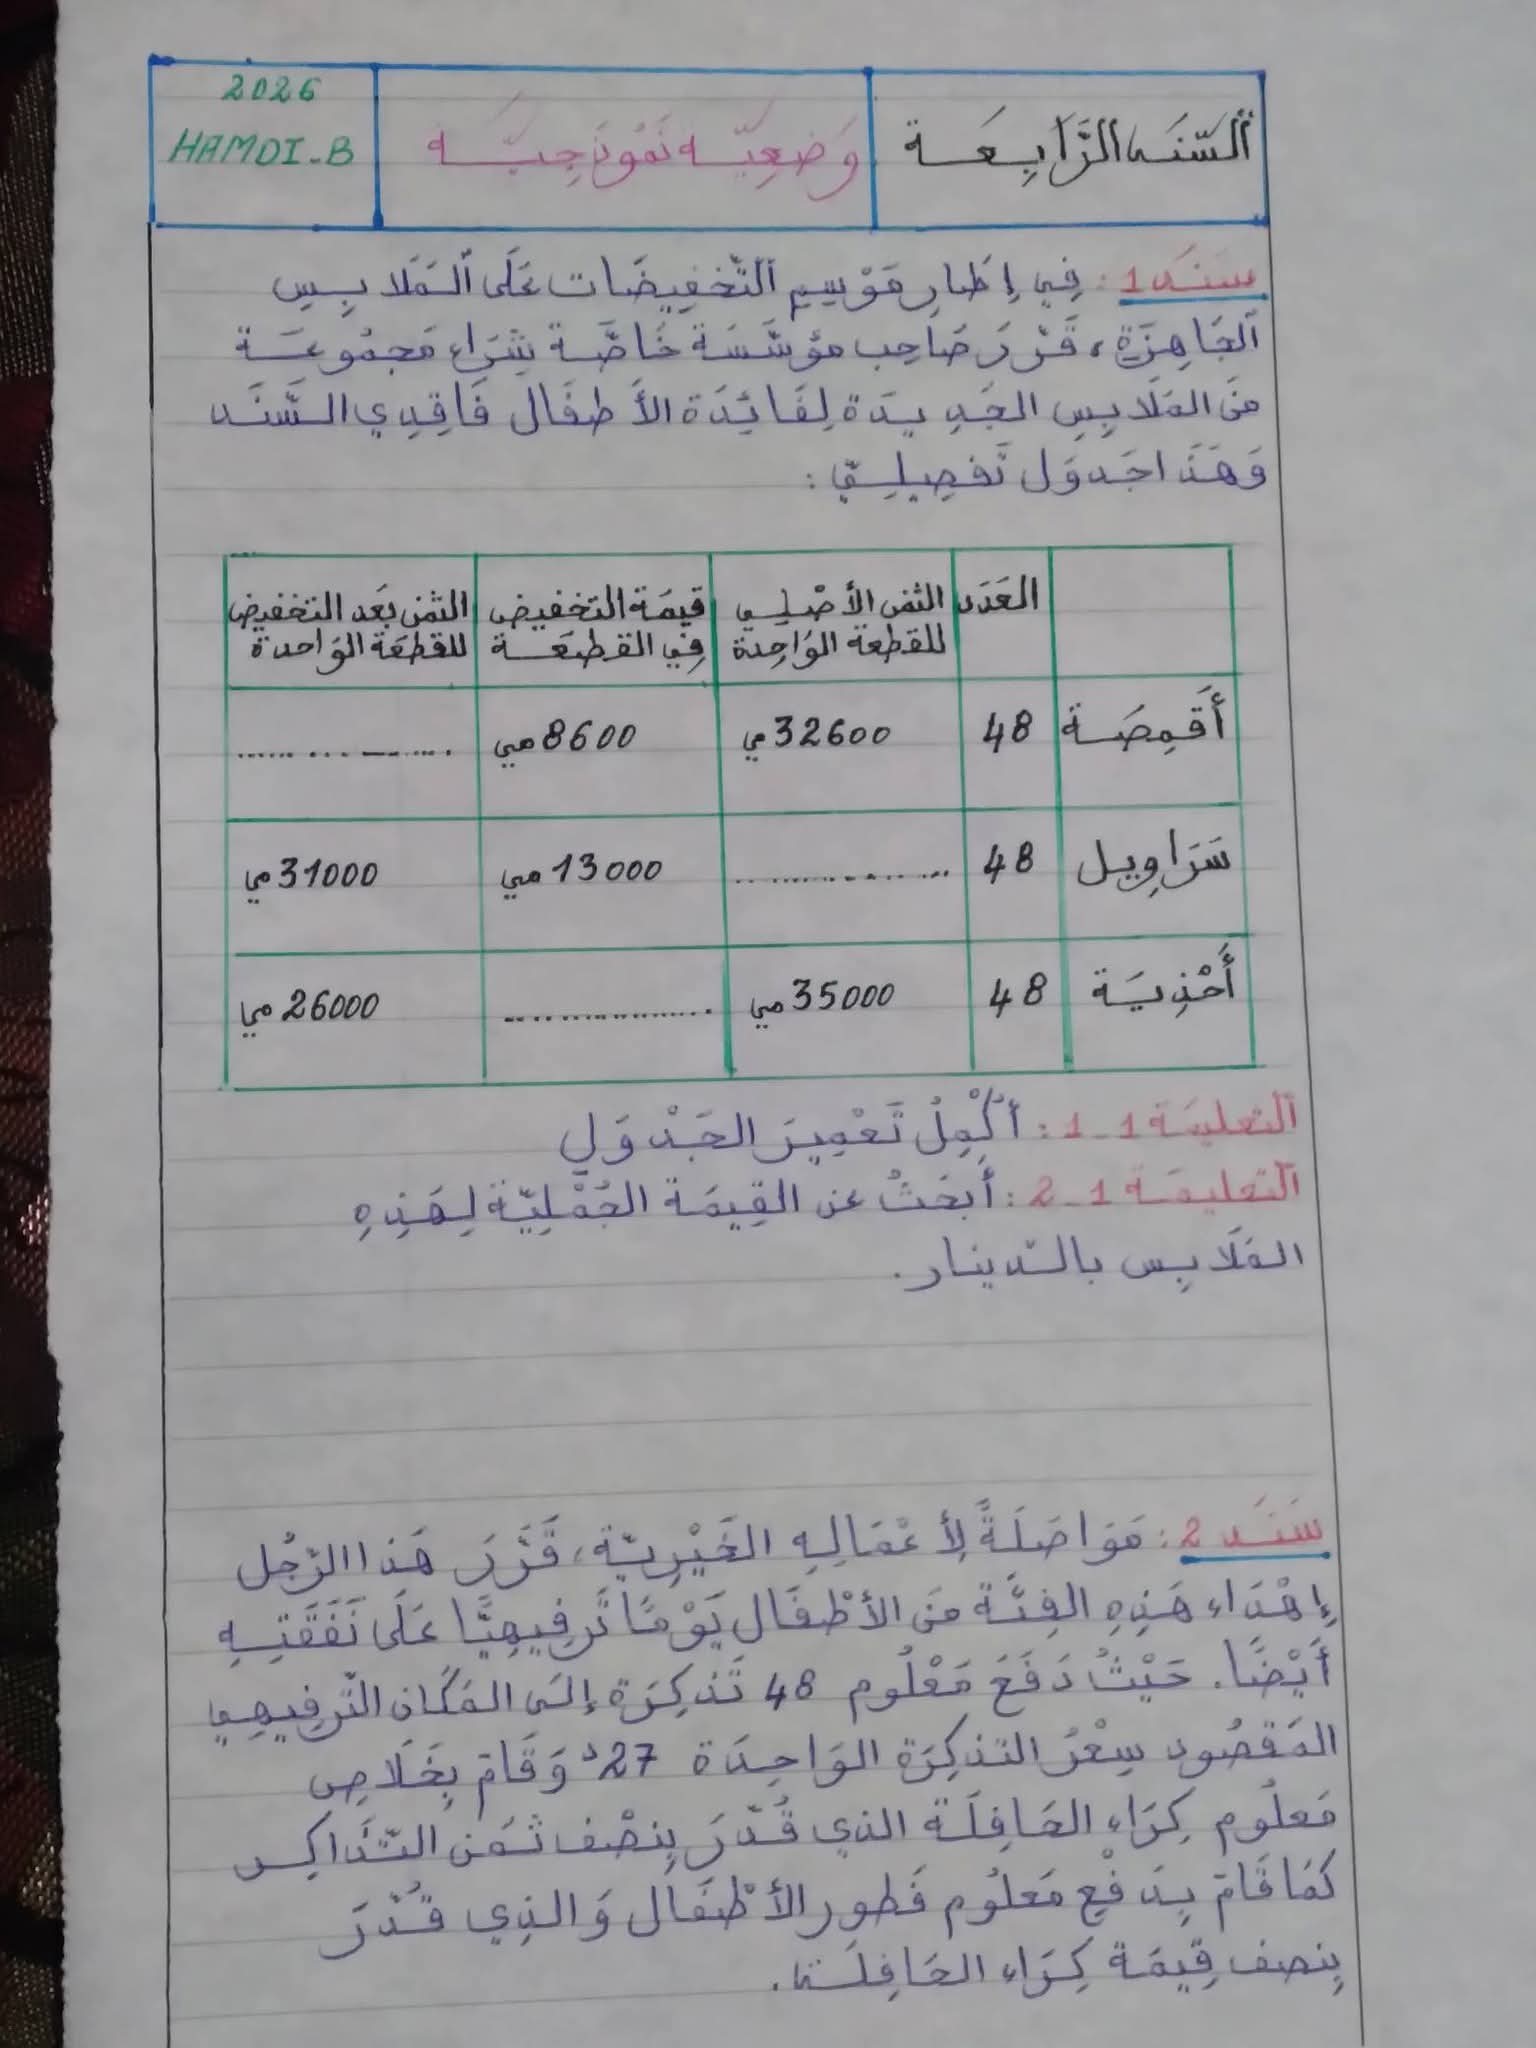 السَّنَة الرَّابِعَة
وَضعِيَّة نَمُوذَجِيَّة
2026
HAMDI-B
سَنَد 1 : فِي إِطَارِ مَوْسِمِ التَّخفِيضَات عَلَى المَلَابِسِ
الجَاهِزَةِ، قَرَّرَ صَاحِب مؤسَّسَة خَاصَّة شِرَاء مَجمُوعَة
منَ المَلَابِسِ الجَدِيدَة لِفَائِدَة الأَطفَال فَاقِدِي السَّنَد
وَهَذَا جَدوَل تَفصِيلِيّ :
العَدَد
الثمن الأَصْلِي للقطعة الوَاحِدَة
قيمَة التخفيض فِي القطعَة
الثمن بَعد التخفيض للقطعَة الوَاحدة
أَقمِصَة 48 32600 مي 8600 مي ..........
سَرَاوِيل 48 .......... 13000 مي 31000 مي
أَحْذِيَة 48 35000 مي .......... 26000 مي
التعليمَة 1-1 : أُكْمِلُ تَعْمِيرَ الجَدْوَلِ
التعليمَة 1-2 : أَبحَثُ عن القِيمَة الجُمْلِيّة لِهَذِهِ
المَلَابِس بالدّينار.
سَنَد 2 : مَوَاصَلَةً لِأَعْمَالِهِ الخَيْرِيّة، قَرَّرَ هَذا الرّجُل
إِهْدَاء هَذِهِ الفِئَة منَ الأطْفَال يَوْمًا تَرفِيهِيًّا عَلَى نَفَقَتِهِ
أَيْضًا. حَيْثُ دَفَعَ مَعْلُوم 48 تَذكِرَة إلَى المَكَان التّرفِيهِي
المَقصُود سِعْرُ التذكِرَة الوَاحِدَة 27د وَقَامَ بِخَلَاصِ
مَعلُوم كِرَاء الحَافِلَة الذي قُدّرَ بِنصْف ثَمَن التّذَاكِر
كمَا قَامَ بِدَفْعِ مَعلُوم فَطور الأطْفَال وَالذِي قُدّرَ
بِنصف قِيمَة كِرَاء الحَافِلَة.